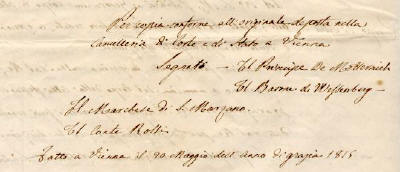 Per copia conforme all'originale deposta nella
Cancelleria di Corte e di Stato a Vienna
Segnati — Il Principe De Metternich
Il Barone de Wessenberg —
Il Marchese di S. Marzano.
Il Conte Rossi.
Fatto a Vienna il 20. Maggio dell'Anno di grazia 1815